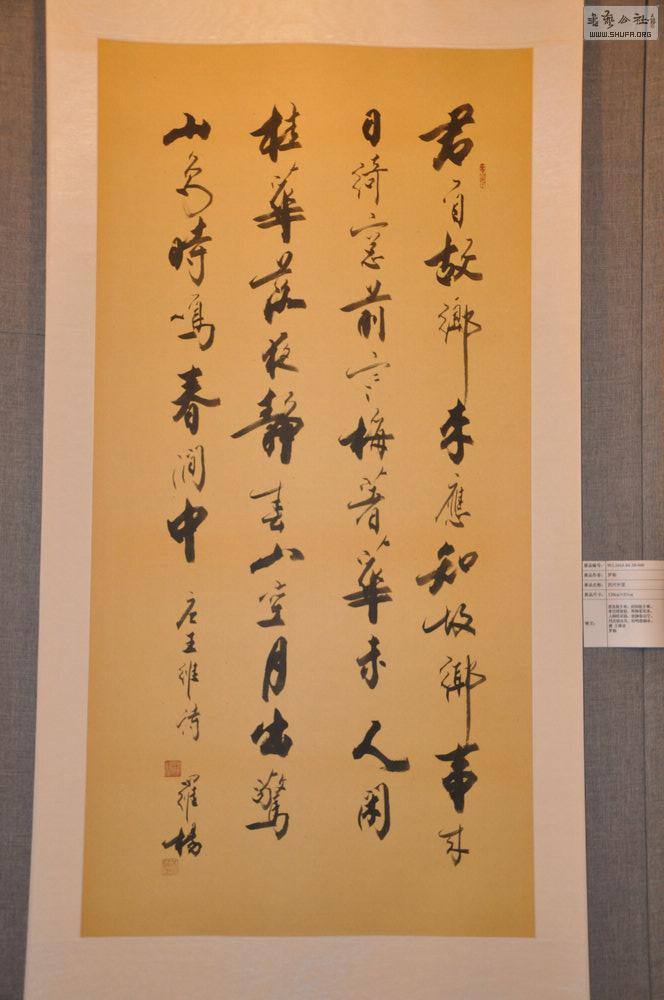 君自故鄉来應知故鄉事来
日綺窓前寒梅著華未人閑
桂華落夜静春山空月出驚
山鳥時鳴春澗中
唐王維诗
羅楊
書藝公社
WWW.SHUFA.ORG